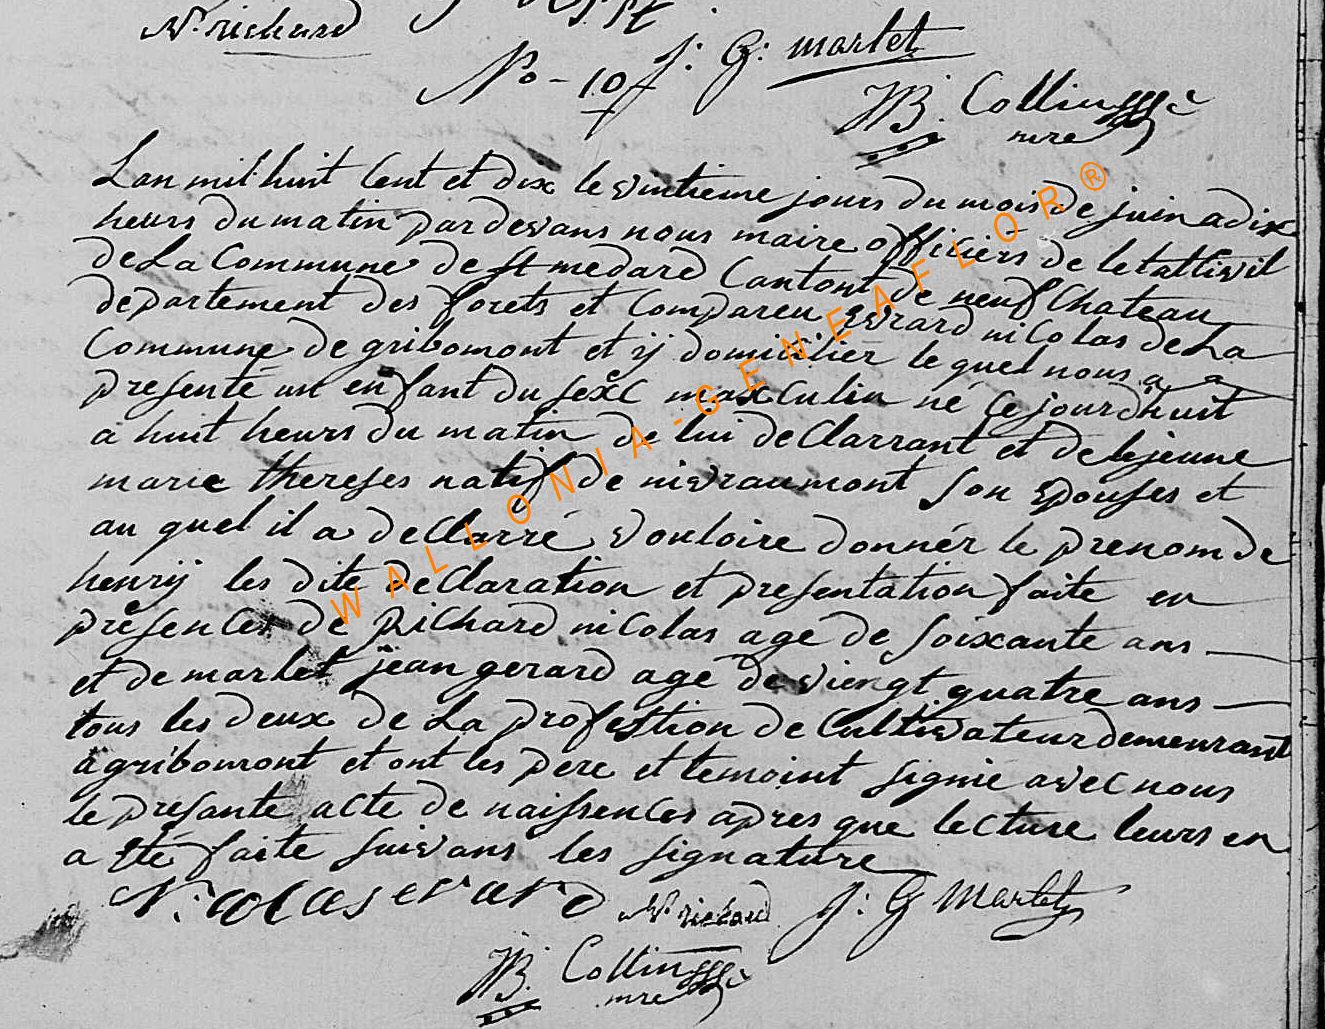 N. richard
No - 10 J: G: marlet
JB. Collin
mre
Lan mil huit Cent et dix le vintieme jours du mois de juin a dix
heurs du matin par devans nous maire officiers de letattivil
de La Commune de St medard Cantont de neuf Chateau
departement des forets et Compareu Evrard nicolas de La
Commune de gribomont et ij domicilier le quel nous a
presenté un enfant du sexe masculin né Ce jourdhuit
a huit heurs du matin de lui deClarrant et de lejeune
marie thereses natif de nivraumont son Epouses et
au quel il a deClarré vouloire donnér le prenom de
henrij les dite deClaration et presentation faite en
présences de RiChard nicolas age de soixante ans
et de marlet jean gerard age de viengt quatre ans
tous les deux de La profestion de Cultivateur demeurant
a gribomont et ont les pere et temoint signié avec nous
le presante acte de naissences apres que lecture leurs en
a Eté faite suivans les signature
N. icolas evard N. richard J: G Marlet
JB. Collin
mre
WALLONIA-GENEAFLOR®